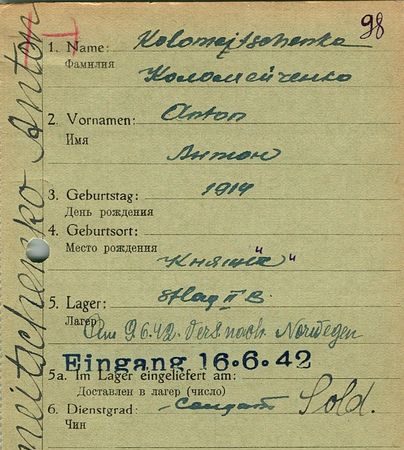 98
1. Name: Kolomejtschenko
Фамилия
Коломейченко
2. Vornamen: Anton
Имя
Антон
3. Geburtstag: 1914
День рождения
4. Geburtsort:
Место рождения
5. Lager: Stlag II B.
Лагерь
Am 9.6.42. Vers. nach Norwegen
Eingang 16.6.42
5a. Im Lager eingeliefert am:
Доставлен в лагер (число)
6. Dienstgrad: солдат Sold.
Чин
meitschenko Anton